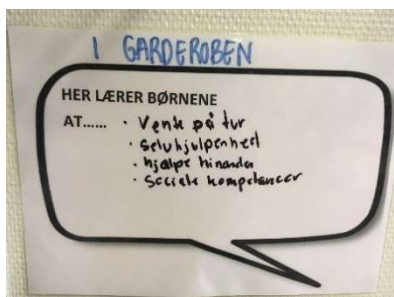 I GARDEROBEN
HER LÆRER BØRNENE
AT...... · Vente på tur
· selvhjulpenhed
· hjælpe hinanden
· Sociale kompetancer